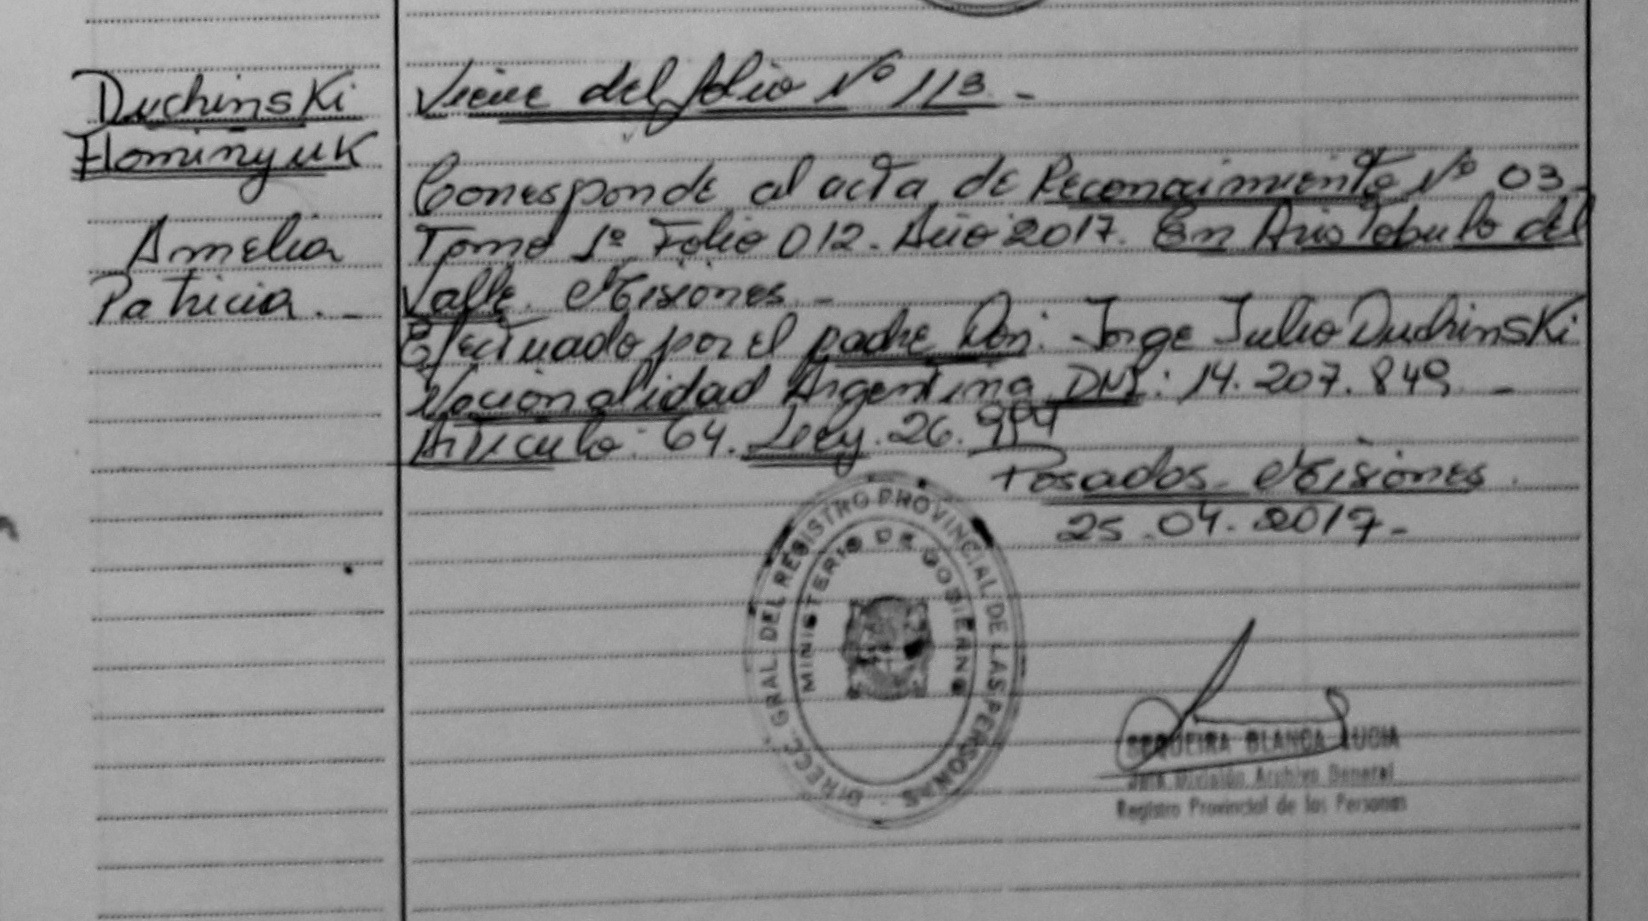 Duchinski
Hominyuk
Amelia
Patricia.-
Viene del folio Nº 113.-
Corresponde al acta de Reconocimiento Nº 03-
Tomo 1º Folio 012. Año 2017. En Aristobulo del
Valle. Misiones-
Efectuado por el padre Don: Jorge Julio Duchinski
Nacionalidad Argentina DNI: 14.207.849-
Artículo: 64. Ley. 26.994
Posadas. Misiones.
25.04.2017-
DIRECC. GRAL. DEL REGISTRO PROVINCIAL DE LAS PERSONAS
MINISTERIO DE GOBIERNO
SEQUEIRA BLANCA LUCIA
Jefa División Archivo General
Registro Provincial de las Personas